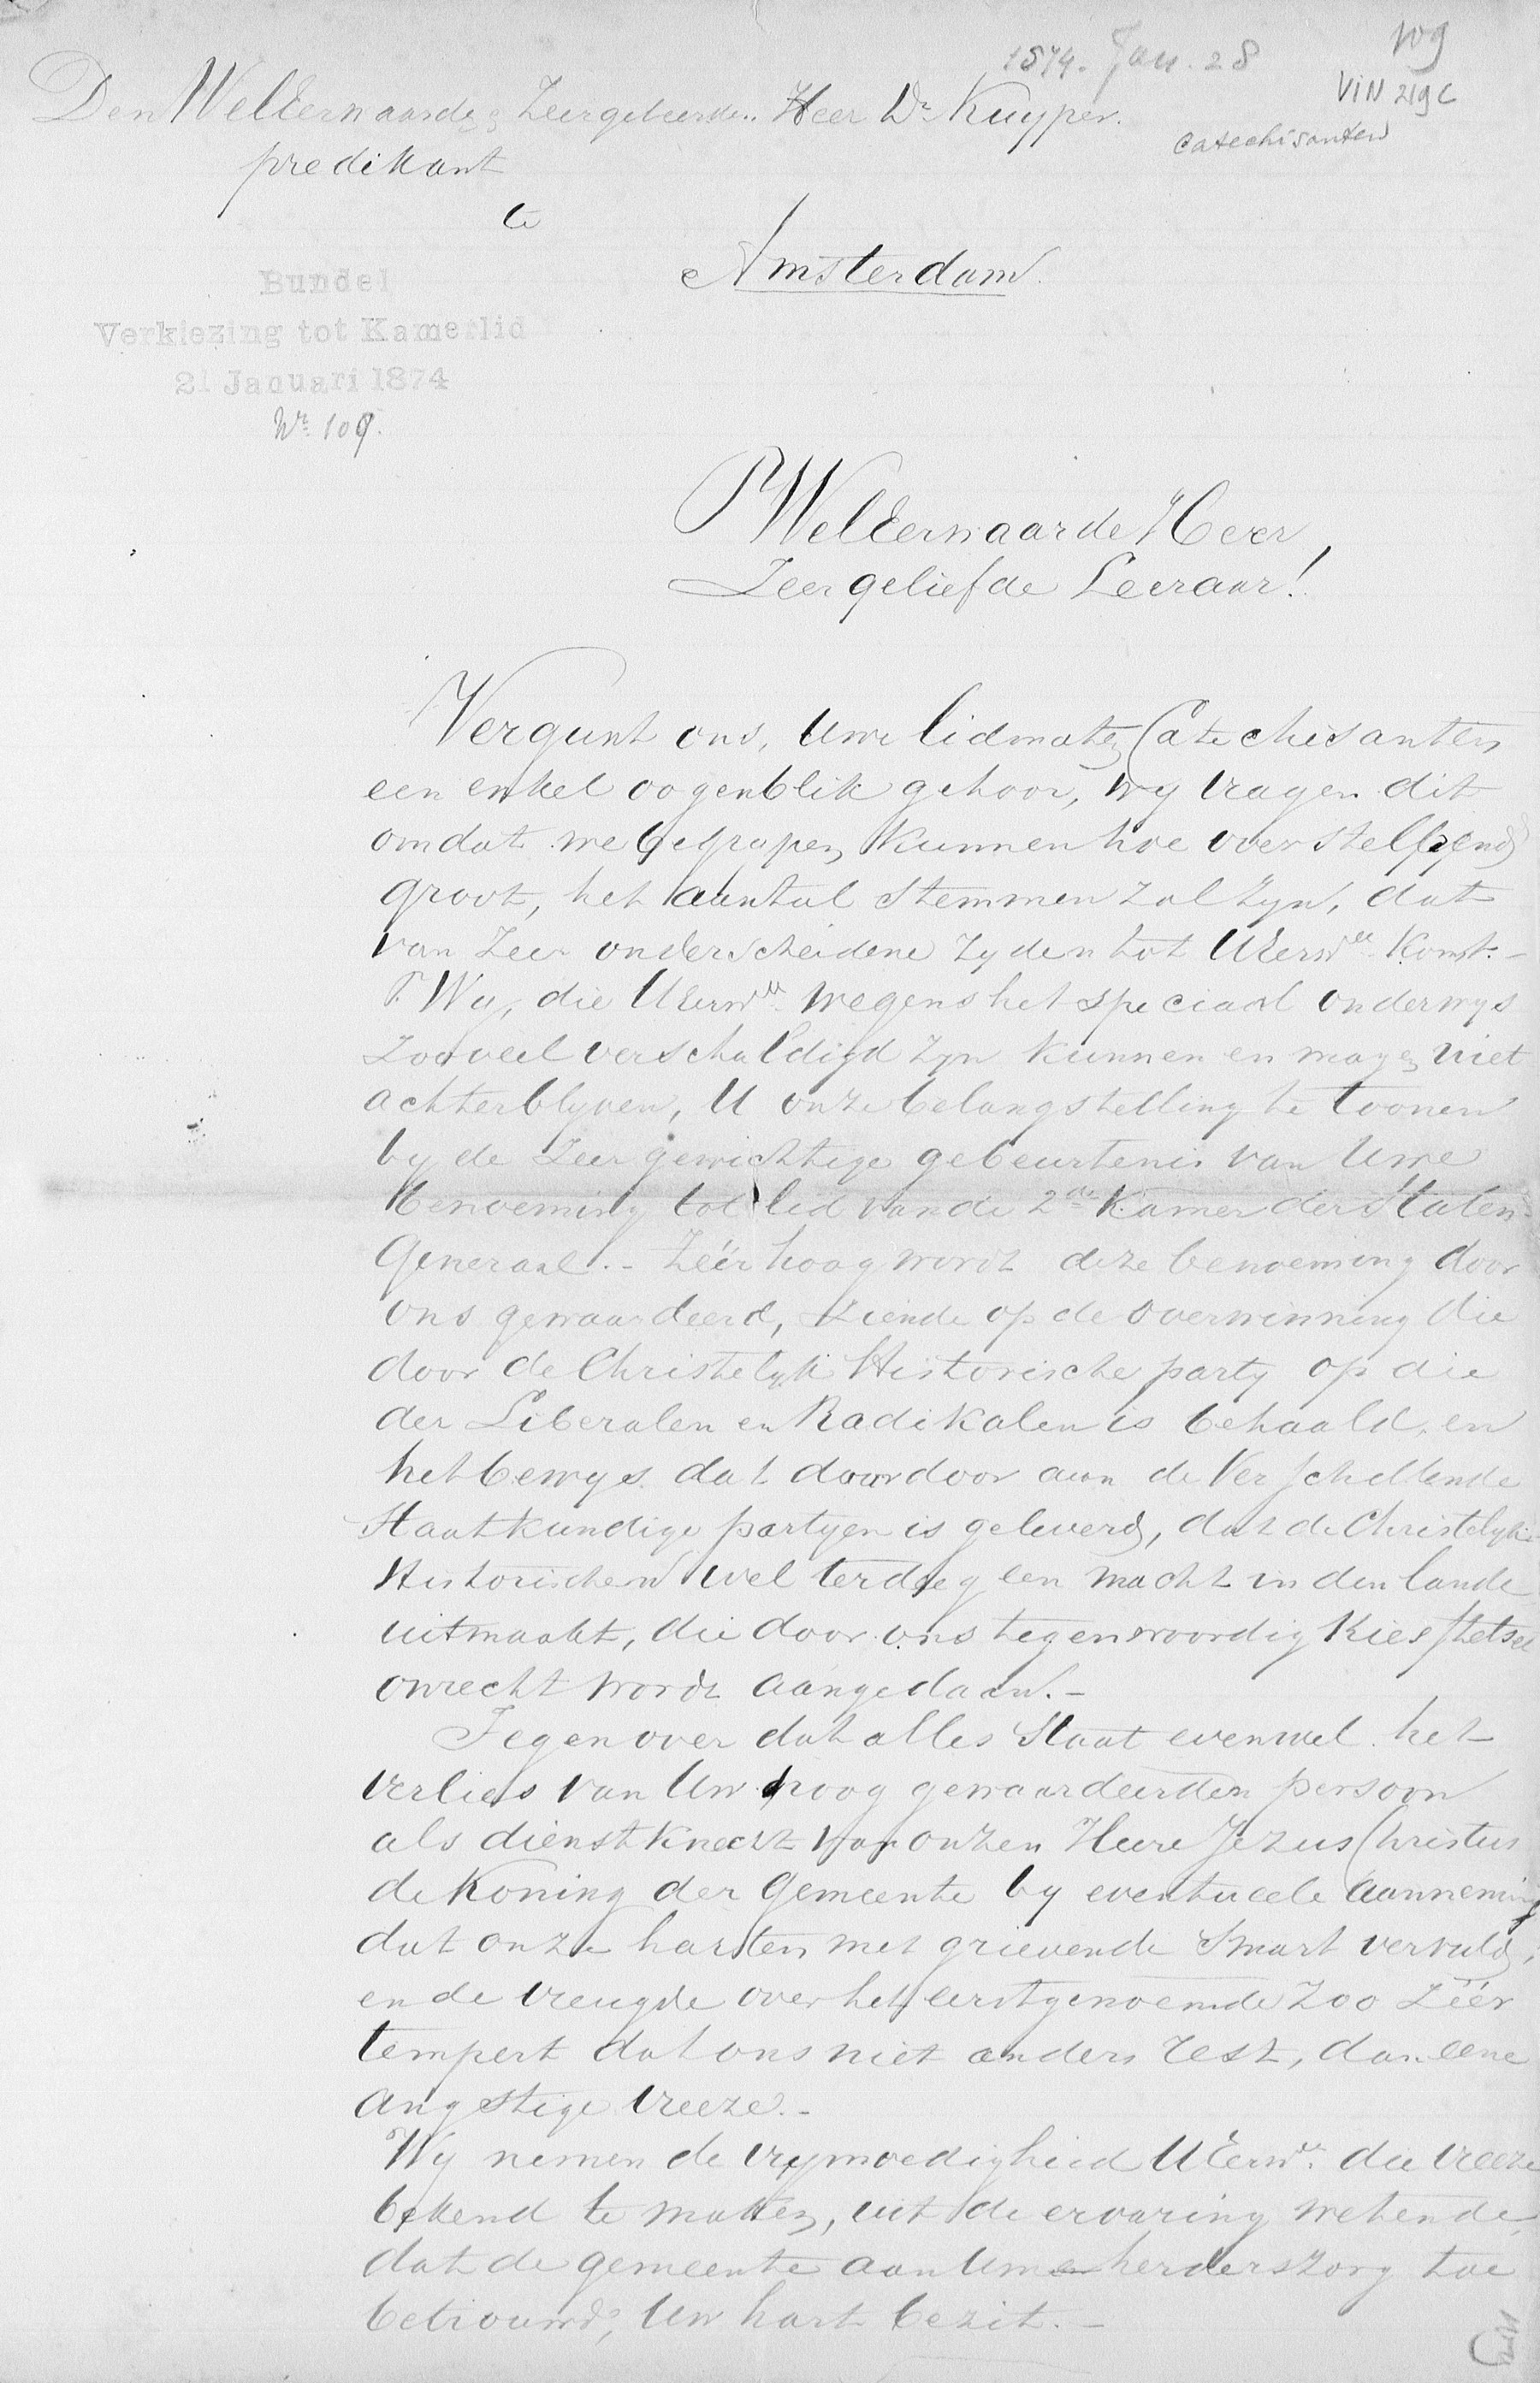 1874. Jan. 28
109
VIN 219c
Catechisanten
Den WelEerwaarde, Zeergeleerden Heer Dr Kuyper.
predikant
te
Amsterdam.
Bundel
Verkiezing tot Kamerlid
21 Januari 1874
Nr. 109.
WelEerwaarde Heer,
Zeer geliefde Leeraar!
Vergunt ons, Uwe lidmaten Catechisanten
een enkel oogenblik gehoor, wy vragen dit
omdat we begrypen kunnen hoe overstelpend
groot, het aantal stemmen zal zyn, dat
van zeer onderscheidene zyden tot UEerwe komt.-
Wy, die UEerwe wegens het speciaal onderwys
zooveel verschuldigd zyn kunnen en mogen niet
achterblyven, U onze belangstelling te toonen
by de zeer gewichtige gebeurtenis van Uwe
benoeming tot lid van de 2de Kamer der Staten-
Generaal.- Zéér hoog wordt deze benoeming door
ons gewaardeerd, ziende op de overwinning die
door de Christelyk Historische party op die
der Liberalen en Radikalen is behaald, en
het bewys dat daardoor aan de verschillende
Staatkundige partyen is geleverd, dat de Christelyk
Historischen wel terdeeg een macht in den lande
uitmaakt, die door ons tegenwoordig kiesstelsel
onrecht wordt aangedaan.-
Tegenover dat alles staat evenwel het
verlies van Uw hoog gewaardeerden persoon
als dienstknecht van onzen Heere Jezus Christus
de Koning der Gemeente by eventueele aanneming
dat onze harten met grievende smart vervuld,
en de vreugde over het eerstgenoemde zoo zéér
tempert dat ons niet anders rest, dan eene
angstige vreeze.-
Wy nemen de vrymoedigheid UEerwe die vreeze
bekend te maken, uit de ervaring wetende,
dat de gemeente aan Uwe herderszorg toe
betrouwd, Uw hart bezit.-